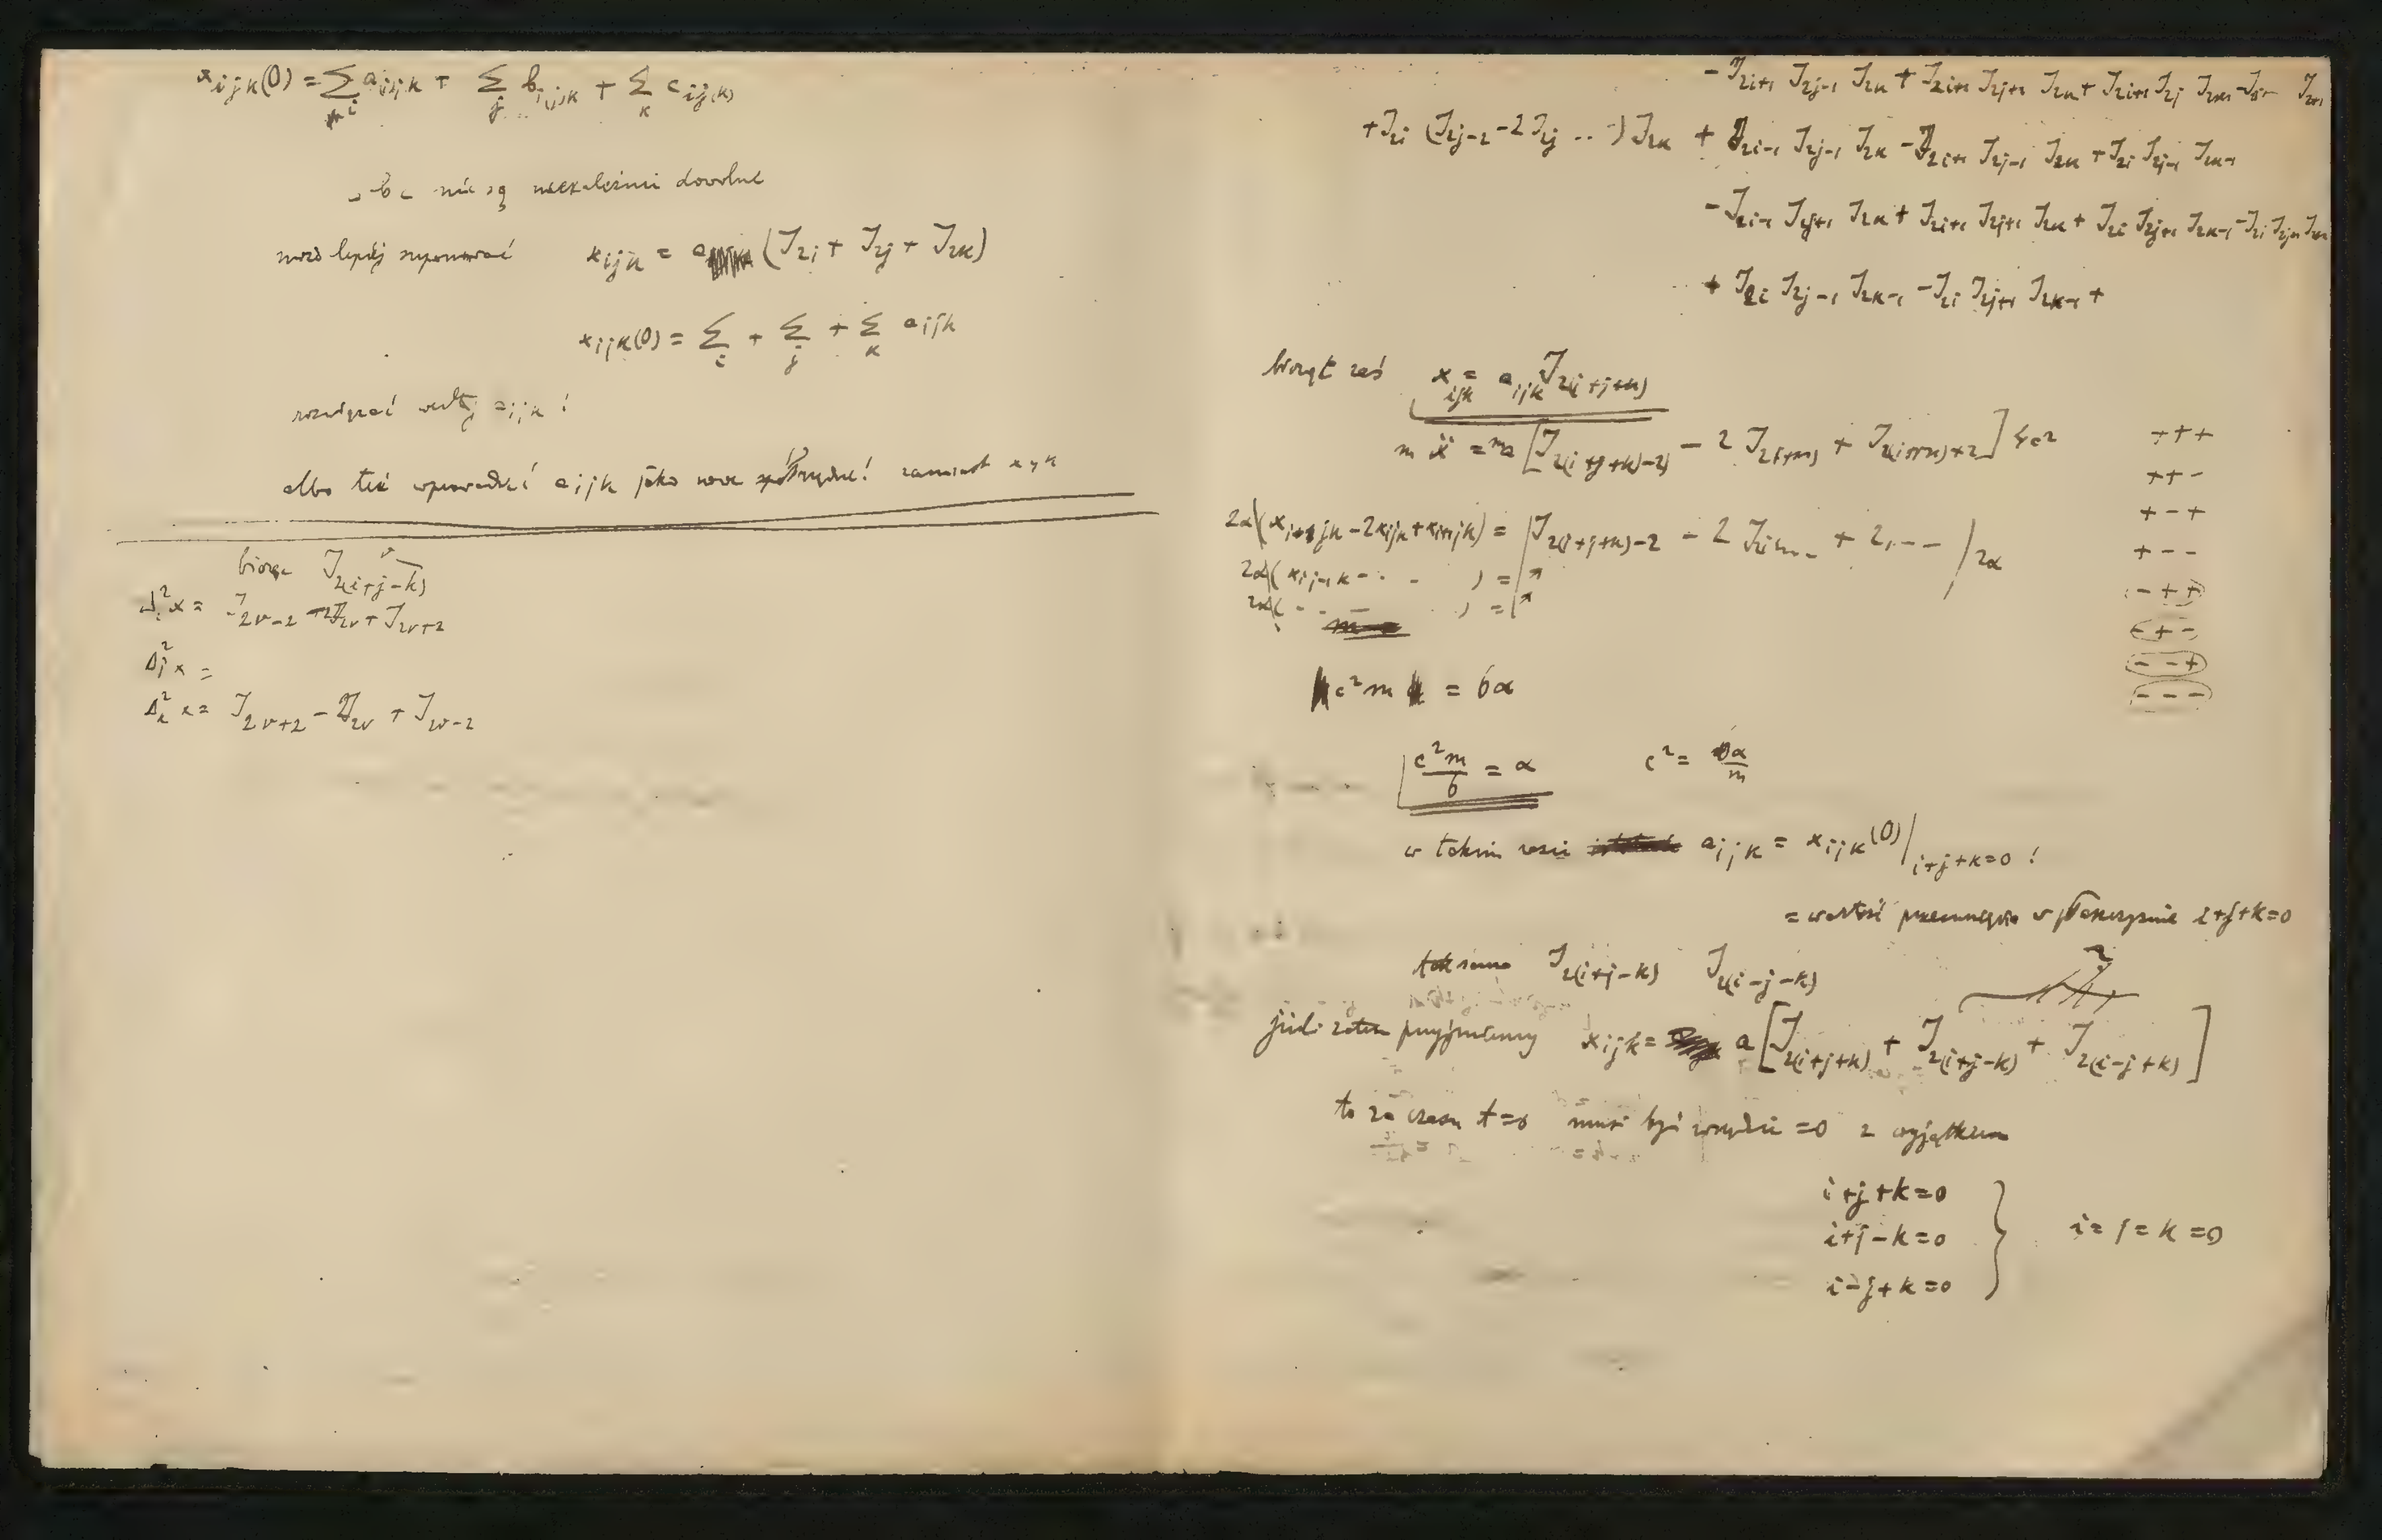 x_{ijk}(0) = ∑_i a_{ijk} + ∑_j b_{i(j)k} + ∑_k c_{ij(k)}
b c nie są niezależnie dowolne
lepiej x_{ijk} = a (J_{2i} + J_{2j} + J_{2k})
x_{ijk}(0) = ∑_i + ∑_j + ∑_k a_{ijk}
rozwiązać według a_{ijk} !
albo też wprowadzić a_{ijk} jako nowe współrzędne! zamiast x_{ijk}
biorąc J_{2(i+j-k)}
Δ_i^2 x = J_{2ν-2} - 2J_{2ν} + J_{2ν+2}
Δ_j^2 x =
Δ_k^2 x = J_{2ν+2} - 2J_{2ν} + J_{2ν-2}
- J_{2i+1} J_{2j-1} J_{2k} + J_{2i+1} J_{2j+1} J_{2k} + J_{2i+1} J_{2j}
+ J_{2i} (J_{2j-2} - 2 J_{2j} ..) J_{2k} + J_{2i-1} J_{2j-1} J_{2k} - J_{2i+1} J_{2j-1} J_{2k} + J_{2i} J_{2j-1} J_{2k-1}
- J_{2i-1} J_{2j+1} J_{2k} + J_{2i+1} J_{2j+1} J_{2k} + J_{2i} J_{2j+1} J_{2k-1}
+ J_{2i} J_{2j-1} J_{2k-1} - J_{2i} J_{2j+1} J_{2k-1} +
zaś x_{ijk} = a_{ijk} J_{2(i+j+k)}
m ẍ = ma [J_{2(i+j+k)-2} - 2 J_{2(++)} + J_{2(i+j+k)+2}] c^2
2α(x_{i+1jk} - 2x_{ijk} + x_{i-1jk}) = | J_{2(i+j+k)-2} - 2 J + 2, --- | 2α
2α( x_{ij-1k} - . - ) = |
2α( - . - ) = |
+++
++-
+-+
+--
-++
-+-
--+
---
c^2 m = 6α
c^2 m / 6 = α c^2 = 6α / m
w takim razie a_{ijk} = x_{ijk}(0) |_{i+j+k=0} !
= wartość przesunięcia w płaszczyźnie i+j+k=0
tak samo J_{2(i+j-k)} J_{2(i-j-k)}
?
jeżeli zatem przyjmiemy x_{ijk} = a [J_{2(i+j+k)} + J_{2(i+j-k)} + J_{2(i-j+k)}]
to za czasu t=0 musi być wszędzie =0 z wyjątkiem
i+j+k=0
i+j-k=0 } i=j=k=0
i-j+k=0